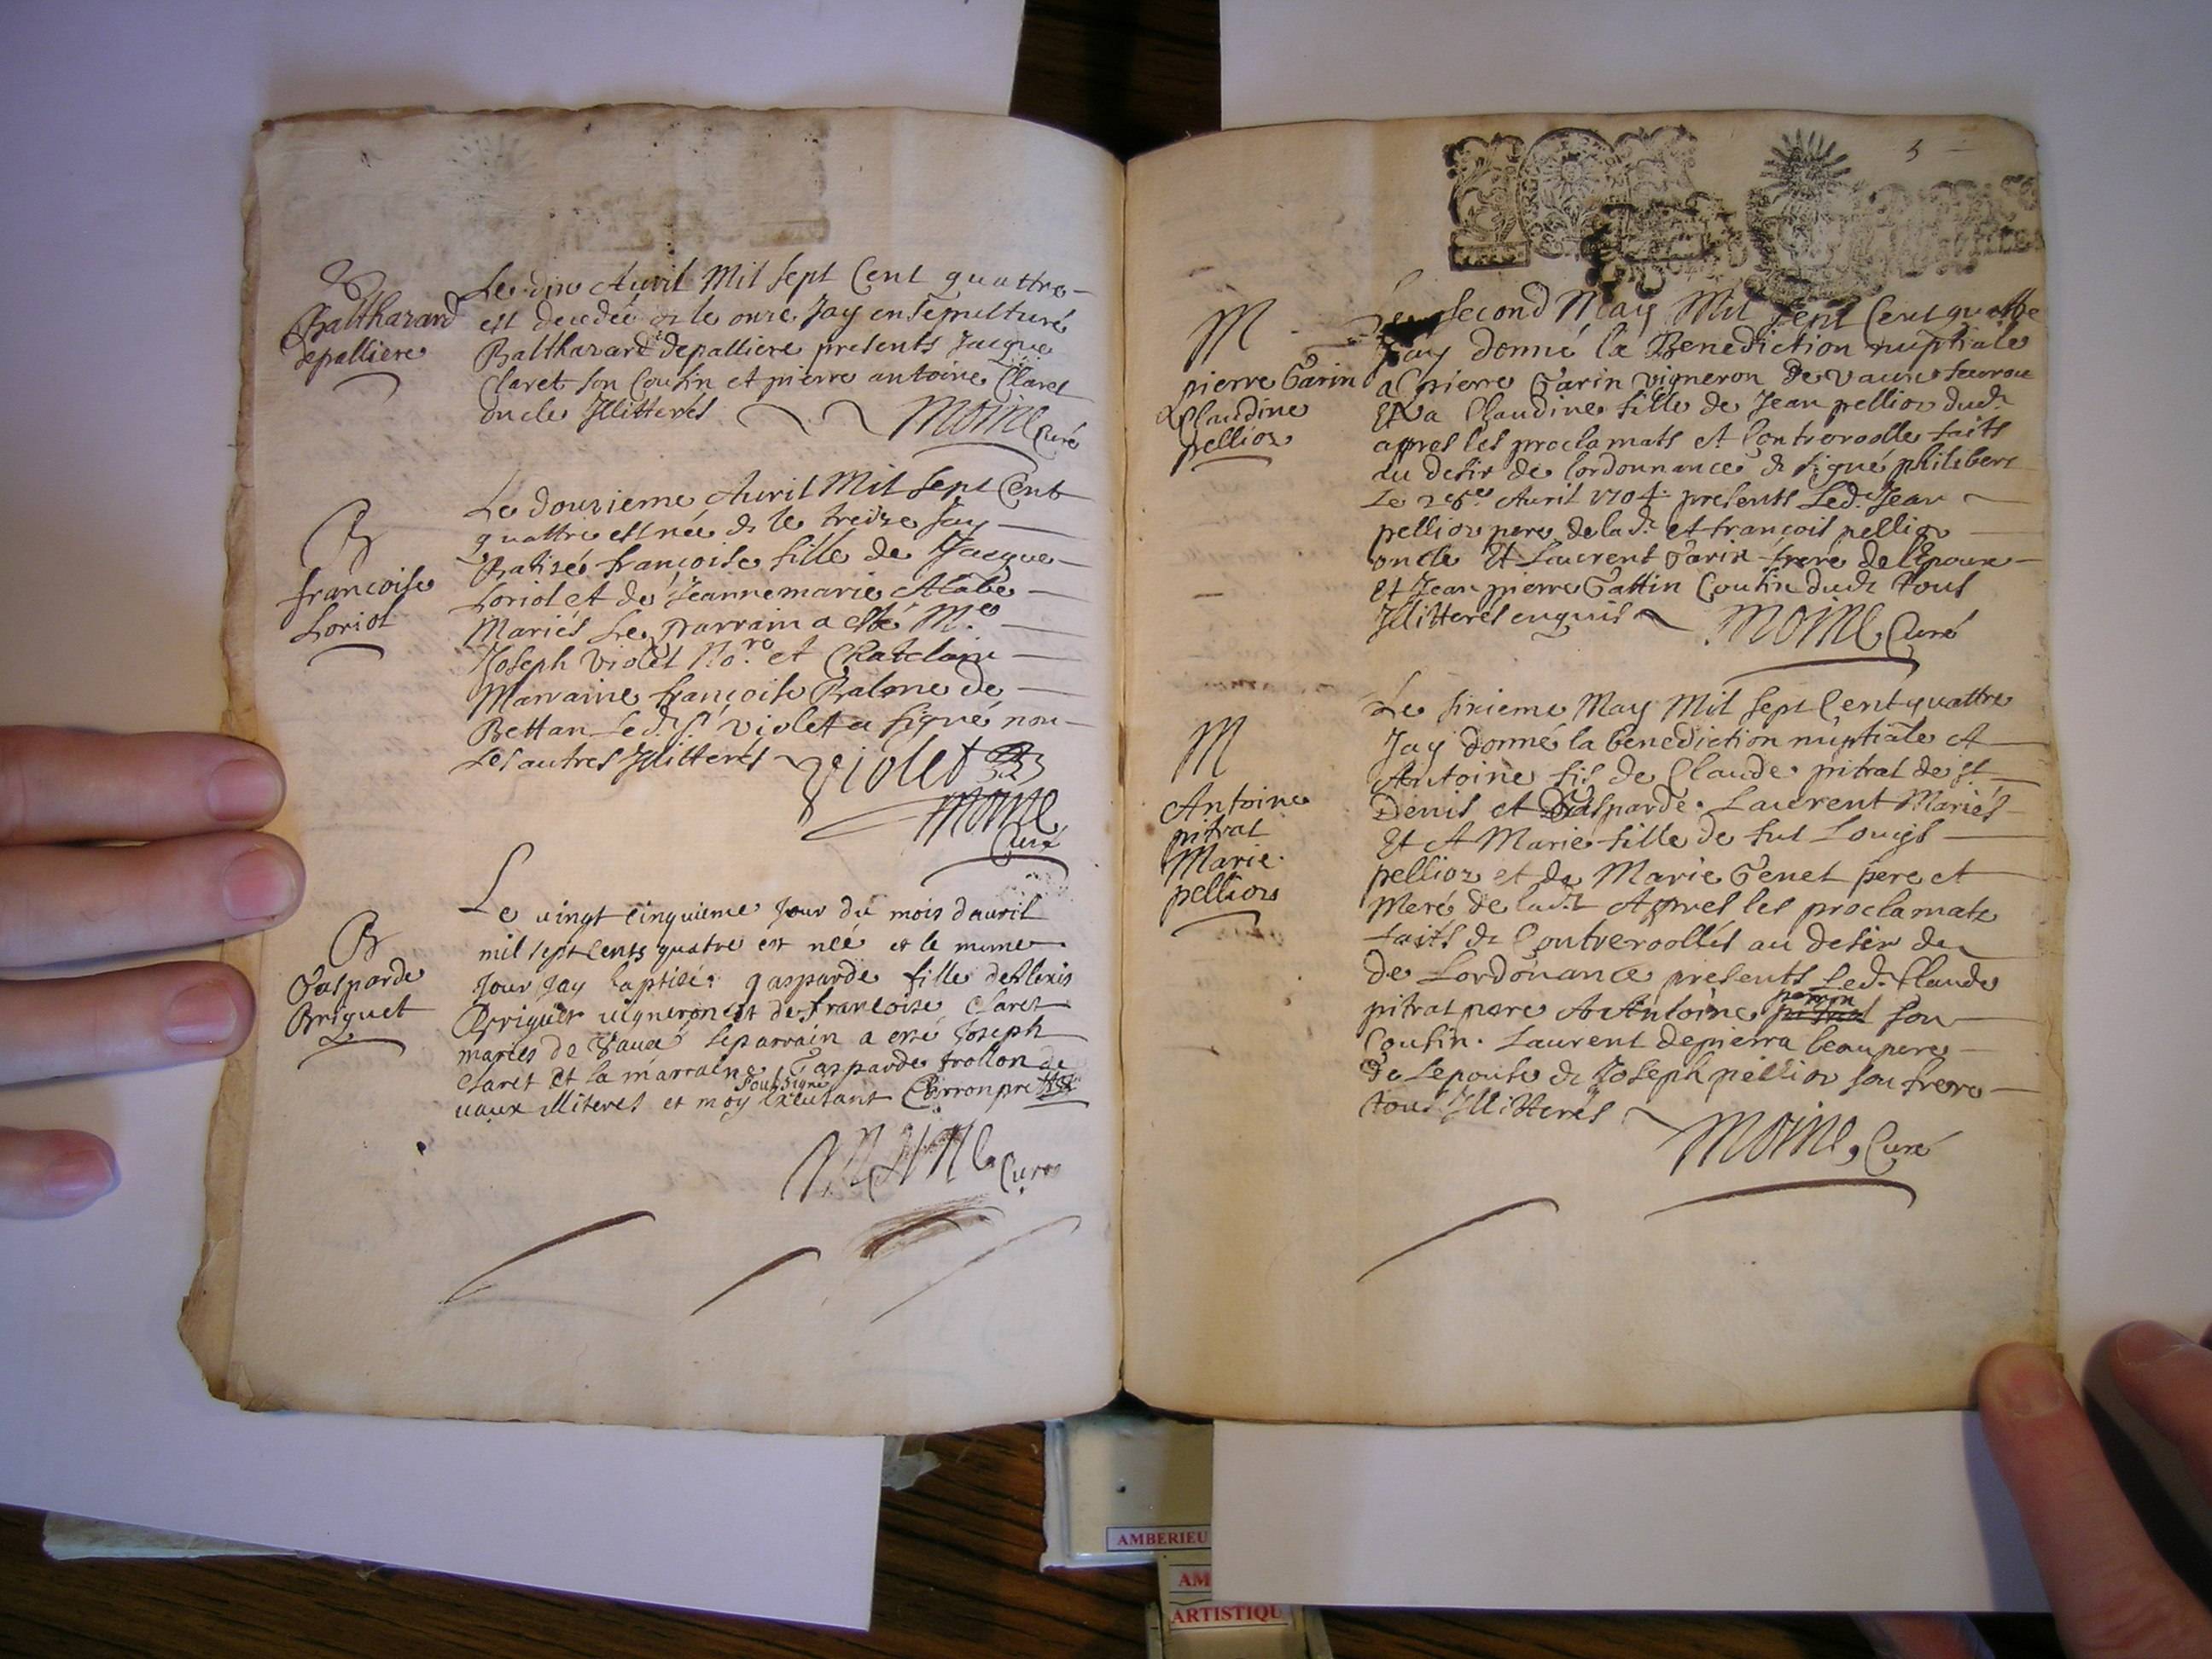 Balthazard
depalliere
Le dix Avril Mil sept Cent quattre
est decedé & le onze Jay ensepulturé
Balthazard depalliere presents Jacque
Claret son Cousin et pierre antoine Claret
oncle Illitterés
Moine Curé
B
françoise
Loriol
Le douzieme Avril Mil sept Cent
quattre est née & le treize Jay
Batisé françoise fille de Jacque
Loriol et de Jeannemarie
Mariés Le parrain a esté Me
Joseph Violet No.re et Chatelain
Marraine françoise Balme de
Bettan Led. Sr. Violet a signé non
Les autres Illitterés Violet
Moine
Curé
B
Gasparde
Briguet
Le vingt cinquieme Jour du mois davril
mil sept cents quatre est neé et le mesme
Jour Jay baptisé gasparde fille dealexis
Briguet vigneron et de francoise Claret
mariés de Vaux le parrain a esté Joseph
Claret et la marraine Gasparde frollon de
vaux illiteres et moy soussigné
Moine Curé
3
M
pierre Garin
& Claudine
pellioz
Le second May Mil sept Cent quattre
Jay donné la Benediction nuptiale
a pierre Garin vigneron de vaux
Et a Claudine fille de Jean pellioz dud.
apres les proclamats et Controrolle faits
au desir de lordonnance & signé philibert
Le 26e Avril 1704 presents Led. Jean
pellioz pere de lad. et françois pellioz
oncle Et Laurent Garin frere de lEpoux
Et Jean pierre Gattin Cousin dud. tous
Illitterés enquis Moine Curé
M
Antoine
pitrat
Marie
pellioz
Le sixieme May Mil sept Cent quattre
Jay donné la benediction nuptiale A
Antoine fils de Claude pitrat de St
Denis et Gasparde Laurent Mariés
Et A Marie fille de fut Louys
pellioz et de Marie Genet pere et
Mere de lad. Apres les proclamats
faits & Controrollés au desir de
de Lordonance presents Led. Claude
pitrat pere & Antoine perrin son
Cousin. Laurent depierra beaupere
de Lepouse & Joseph pellioz son frere
tous Illitterés
Moine Curé
AMBERIEU
AM
ARTISTIQU